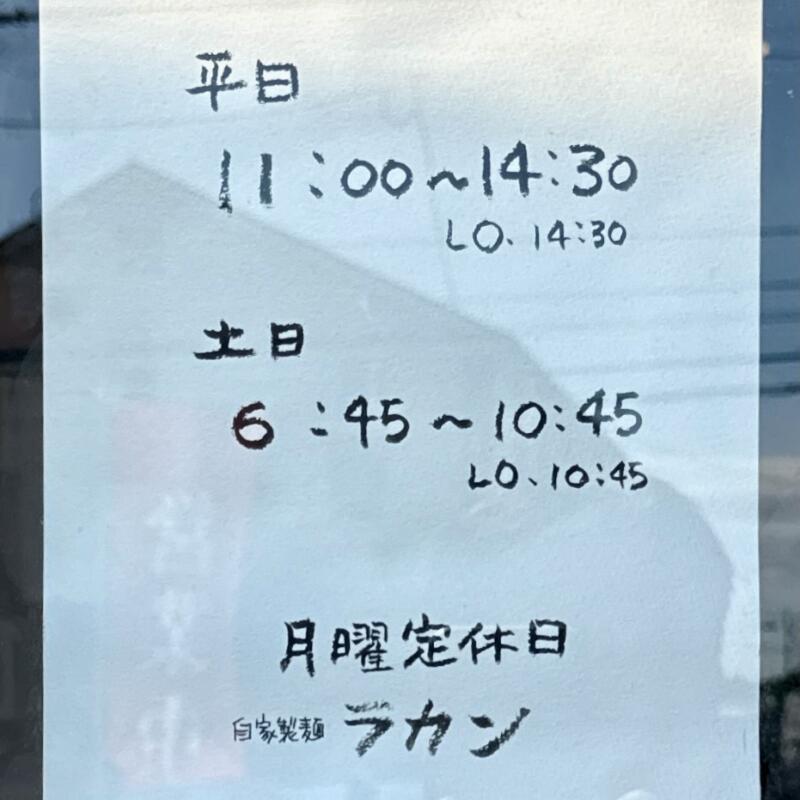 平日
11:00~14:30
LO. 14:30
土日
6:45~10:45
LO. 10:45
月曜定休日
自家製麺 ラカン